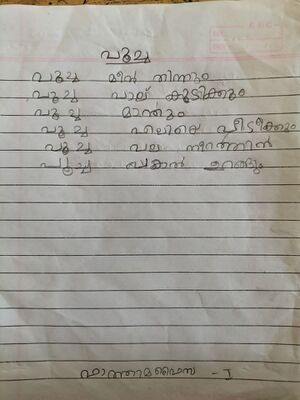 പൂച്ച
പൂച്ച മീൻ തിന്നും
പൂച്ച പാല് കുടിക്കും
പൂച്ച മാന്തും
പൂച്ച എലിയെ പിടിക്കും
പൂച്ച പല നിറത്തിൽ
പൂച്ച ഉറങ്ങും
ഫാത്തിമ ഫൈസ - I